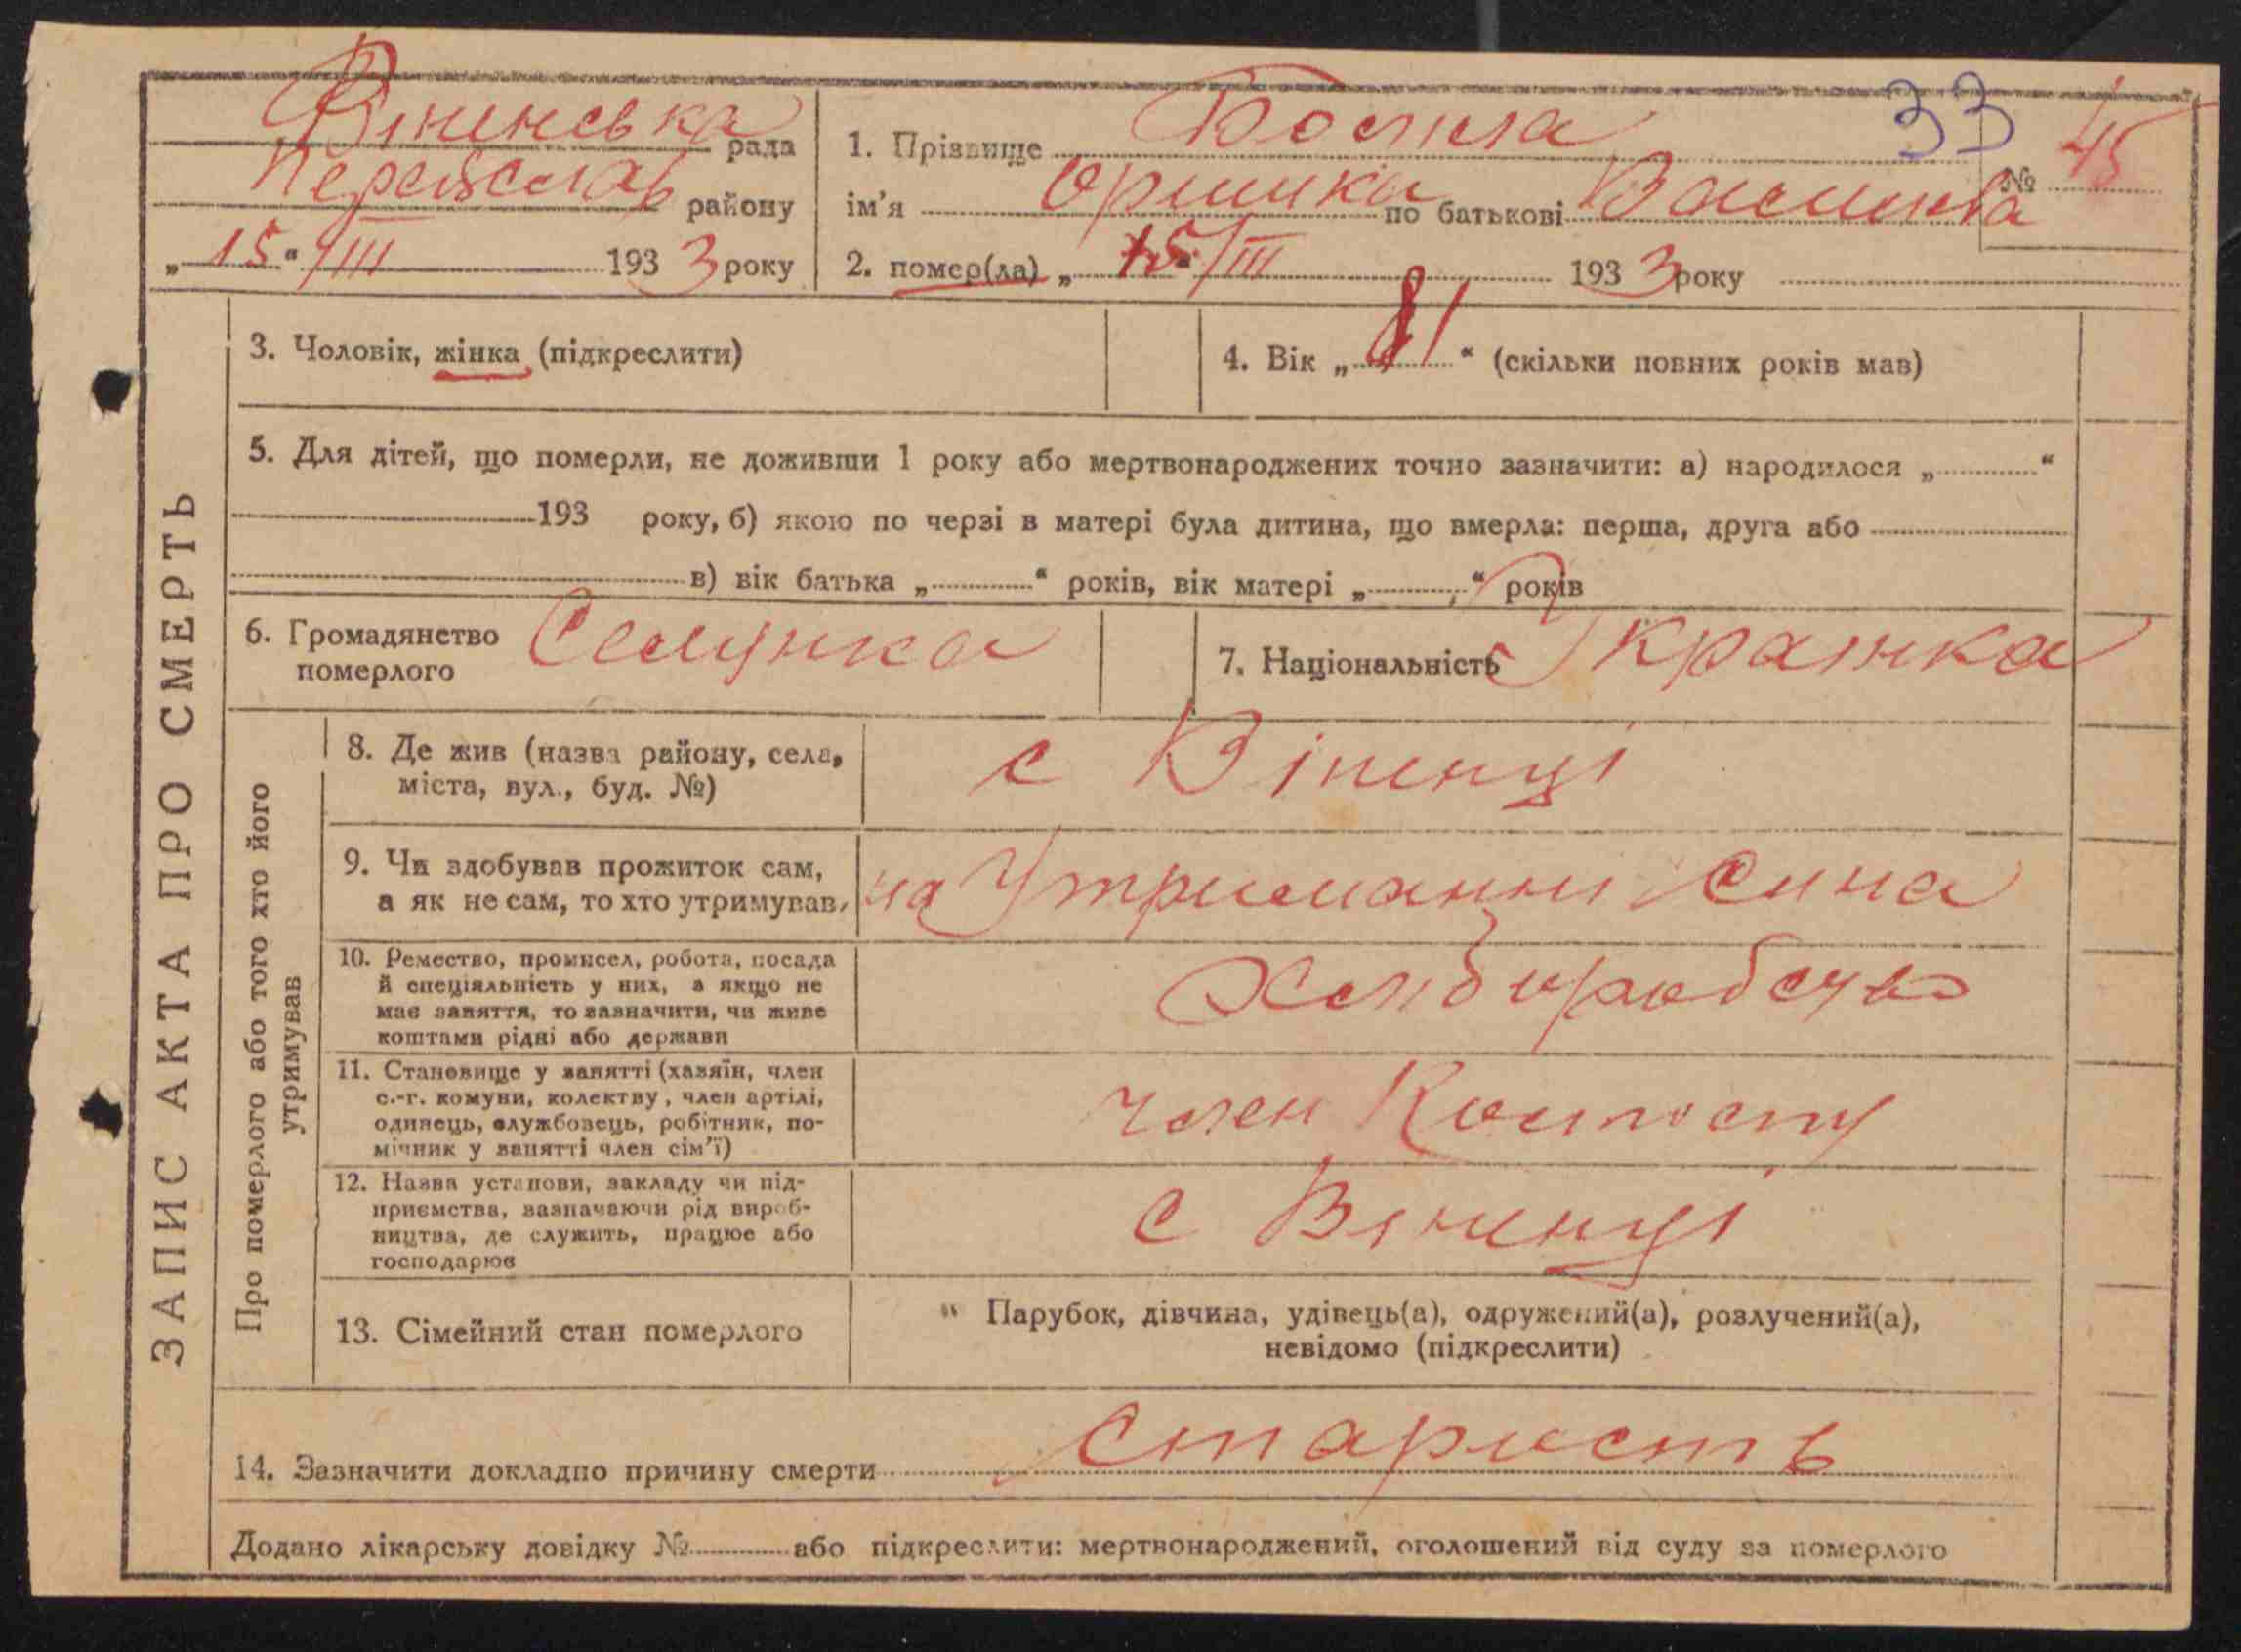 ЗАПИС АКТА ПРО СМЕРТЬ
Вінинська рада
Переяслав району
„15“/III 1933 року
33
№ 45
1. Прізвище
ім'я по батькові
2. помер(ла) „15“/III 1933 року
3. Чоловік, жінка (підкреслити)
4. Вік „81“ (скільки повних років мав)
5. Для дітей, що померли, не доживши 1 року або мертвонароджених точно зазначити: а) народилося „ “
193 року, б) якою по черзі в матері була дитина, що вмерла: перша, друга або
в) вік батька „ “ років, вік матері „ “ років
6. Громадянство
померлого
Селянка
7. Національність Украінка
Про померлого або того хто його
утримував
8. Де жив (назва району, села,
міста, вул., буд. №)
с Віненці
9. Чи здобував прожиток сам,
а як не сам, то хто утримував,
на Утриманні сина
10. Ремество, промисел, робота, посада
й спеціяльність у них, а якщо не
має заняття, то зазначити, чи живе
коштами рідні або держави
11. Становище у занятті (хазяїн, член
с.-г. комуни, колективу, член артілі,
одинець, службовець, робітник, по-
мічник у занятті член сім'ї)
член
12. Назва установи, закладу чи під-
приємства, зазначаючи рід вироб-
ництва, де служить, працює або
господарює
с Віненці
13. Сімейний стан померлого
Парубок, дівчина, удівець(а), одружений(а), розлучений(а),
невідомо (підкреслити)
14. Зазначити докладно причину смерти старость
Додано лікарську довідку № або підкреслити: мертвонароджений, оголошений від суду за померлого